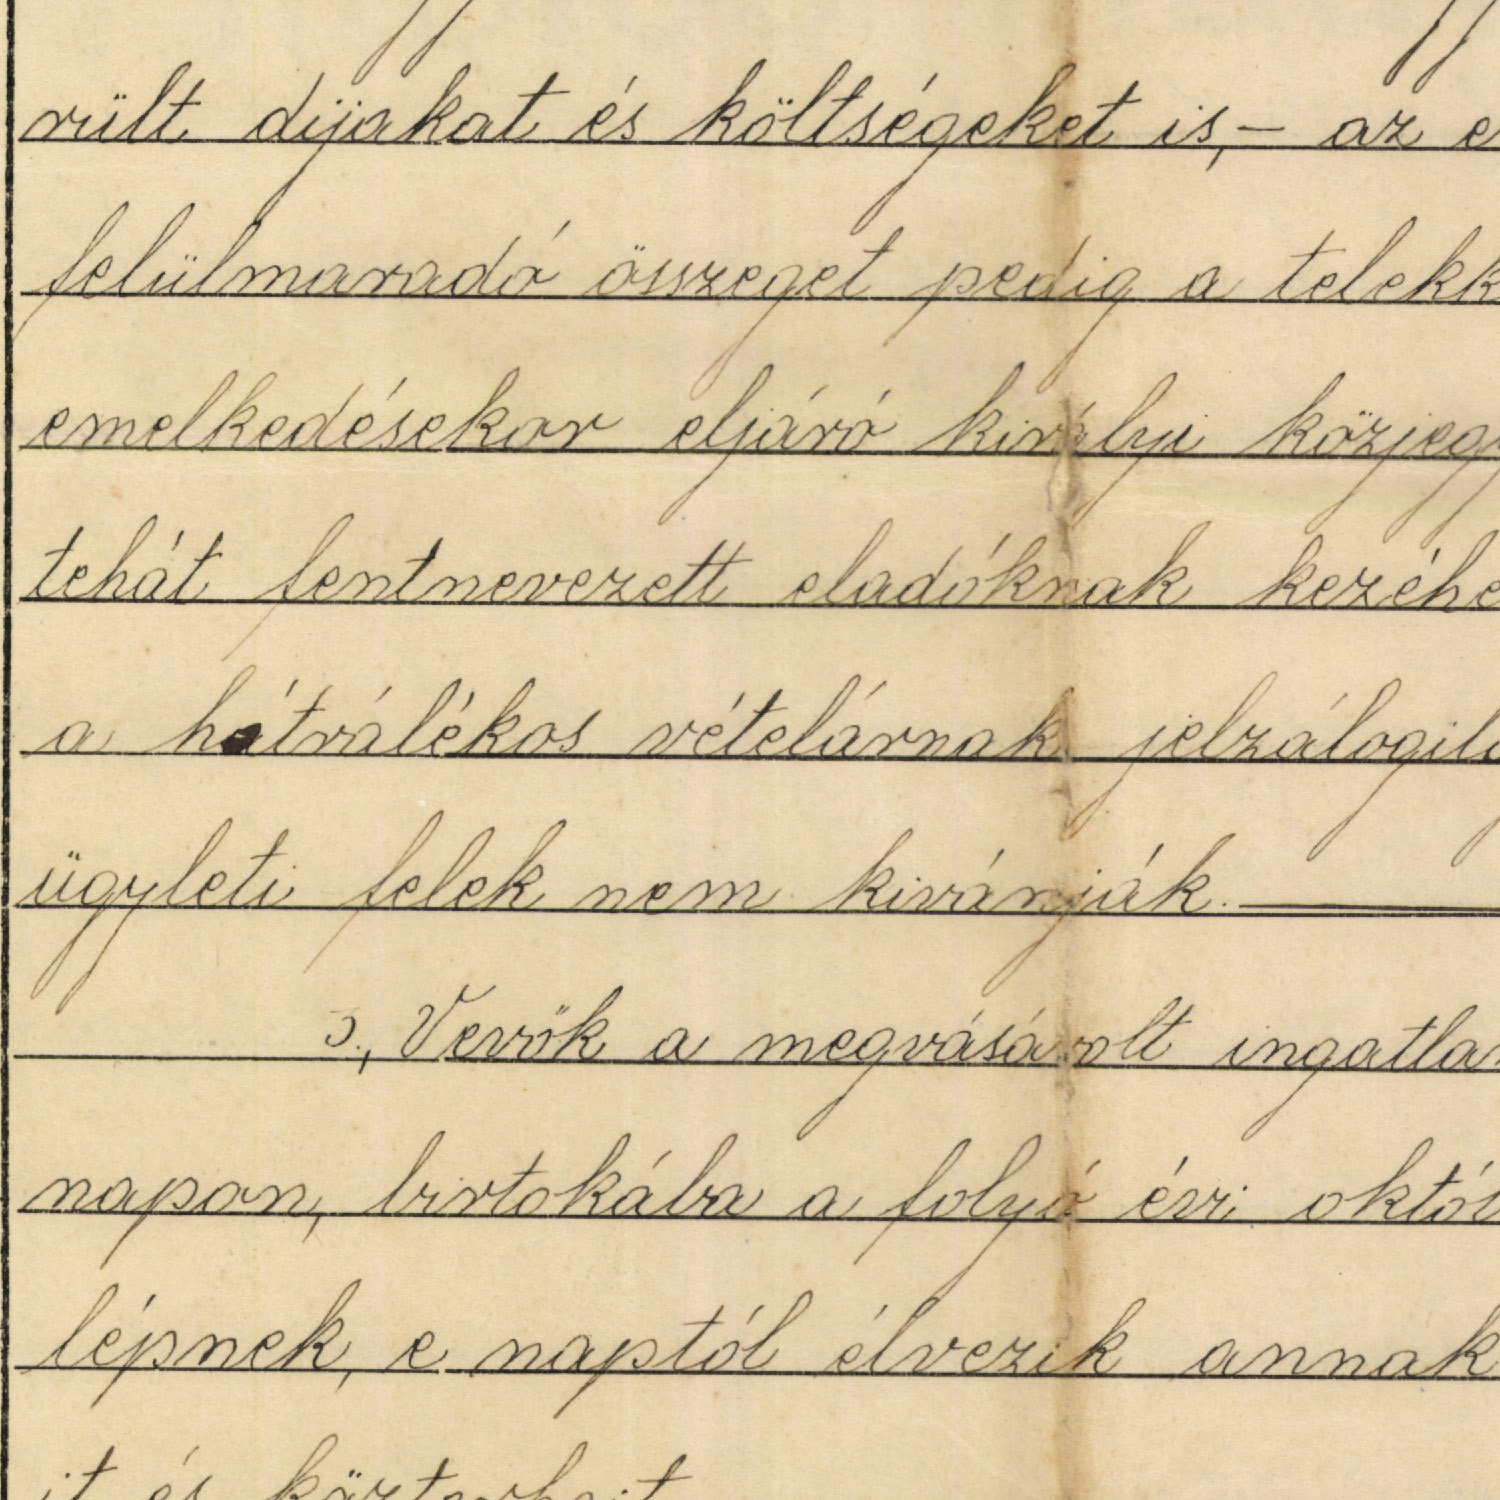 rült dijakat és költségeket is,- az e
felülmaradó összeget pedig a telekk
emelkedésekor eljáró királyi közjegy
tehát fentnevezett eladóknak kezéhe
a hátrálékos vételárnak jelzálogilag
ügyleti felek nem kivánják.
3., Vevők a megvásárolt ingatlan
napon, birtokába a folyó évi októb
lépnek, e naptól élvezik annak
it és közterheit